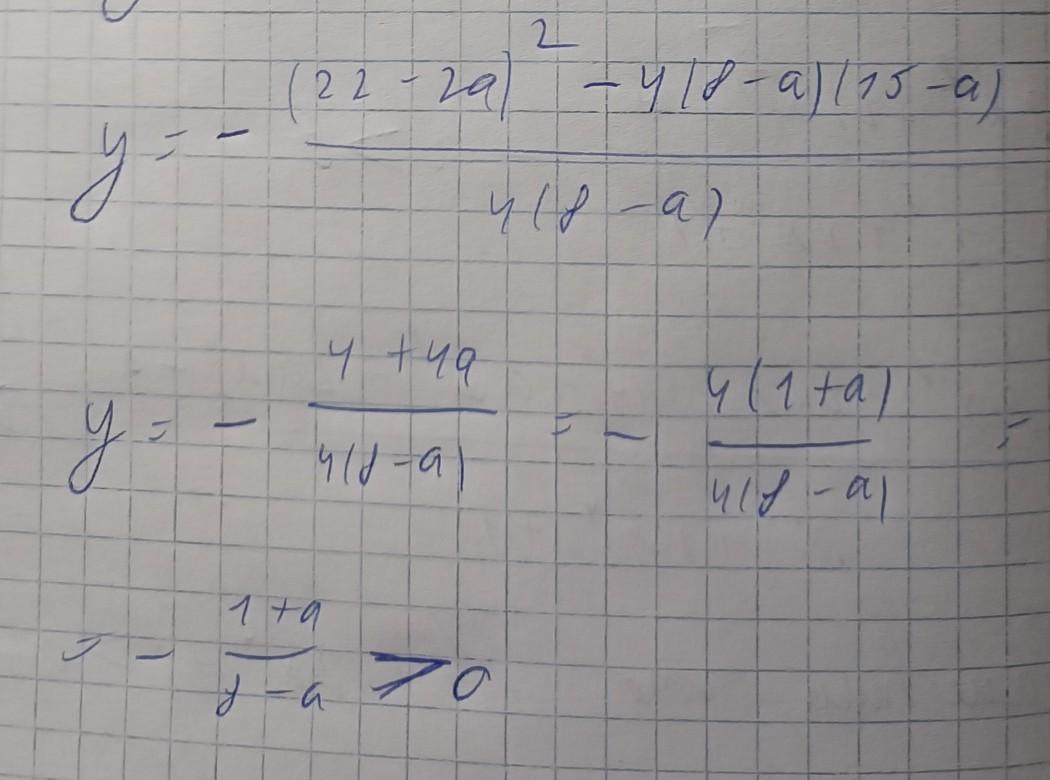 y = - \frac{(22 - 2a)^2 - 4(8 - a)(15 - a)}{4(8 - a)}
y = - \frac{4 + 4a}{4(8 - a)} = - \frac{4(1 + a)}{4(8 - a)} =
= - \frac{1 + a}{8 - a} ⩾ 0